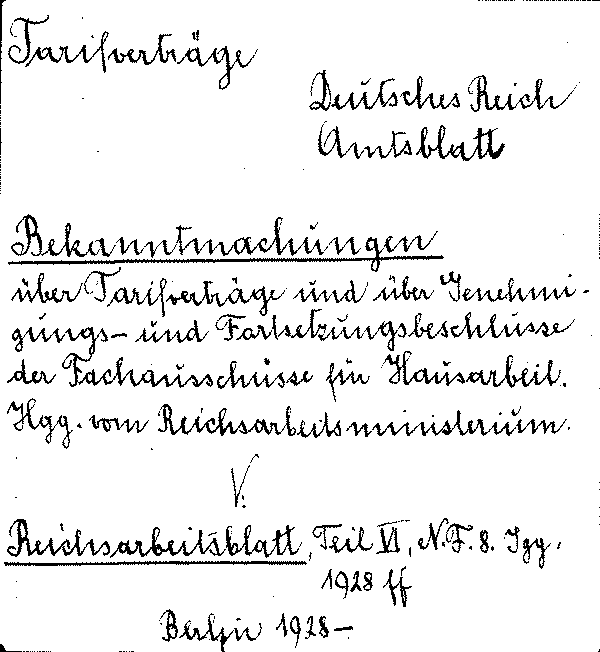 Tarifverträge
Deutsches Reich
Amtsblatt
Bekanntmachungen
über Tarifverträge und über Genehmi-
gungs- und Fortsetzungsbeschlüsse
der Fachausschüsse für Hausarbeit.
Hgg. vom Reichsarbeitsministerium.
V.
Reichsarbeitsblatt, Teil VI, N.F. 8. Jgg.
1928 ff
Berlin 1928-